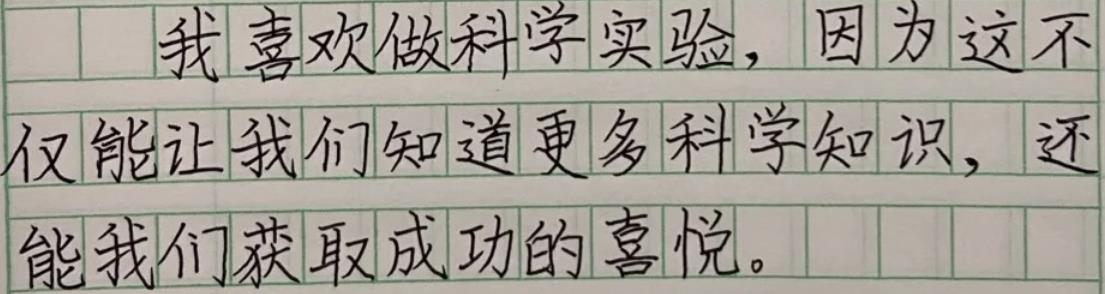 我喜欢做科学实验，因为这不
仅能让我们知道更多科学知识，还
能我们获取成功的喜悦。